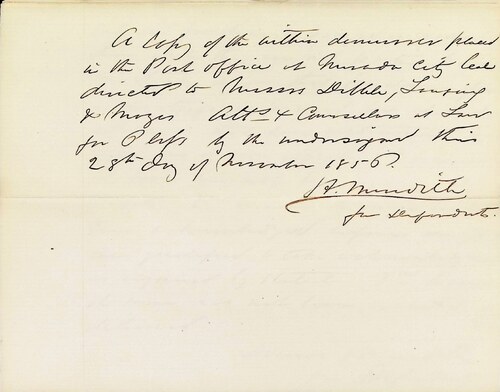 A Copy of the within demurrer placed
in the Post office at Nevada City Cal
directed to Messrs Dibble, Lansing
& Mozes Atts & Counselors at Law
for Plffs by the undersigned this
28th Day of November 1856.
H. Meredith
for Defendants.